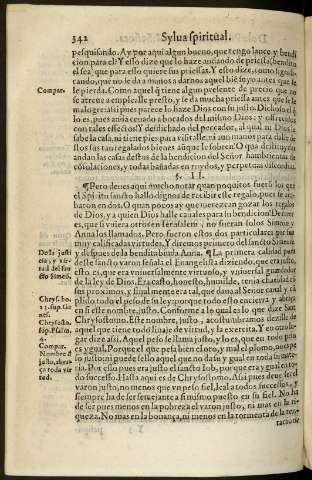 342
Sylua spiritual.
pesquisando. Ay por aqui algun bueno, que tengo lance y bendi
cion para el? Y esto dize que lo haze andando de priessa (bendita
el sea) que para esto quiere sus priessas. Y esto dize, como
cando, que no le da a manos a darnos aquel bie suyo antes que
se pierda. Como aquel q tiene algun presente de precio que no
se atreue a emplalle presto, y le da mucha priessa antes que se le
tales effectos! Desdichado del peccador, al qual ni Dios le
sabe la casa, ni tiene pies para visitalle, ni aun manos para dalle de
andan las casas destos de la bendicion del Señor hambrientas de
cosolaciones, y todas bañadas en
Compar.
§. II.
¶ Pero deues aqui mucho notar quan poquitos fueron los que
el Spiritu sancto hallo dignos de recibir este regalo, pues se aca
baron en dos. O quan pocos ay que merezcan gozar los regalos
de Dios, y a quien Dios halle cauales para su bendicion! De mer
ces, que se viuia otros en Ierusalem, y no fueran solos Simeon y
Anna los llamados. Pero fueron estos dos particulares por sus
muy calificadas virtudes. Y diremos primero del sancto Simeon,
y despues de la bendita biuda Anna. ¶ La primera calidad pues
deste sancto varon señala el Euangelista diziendo, que era justo,
esto es, que era vniuersalmente virtuoso, y vniuersal guardador
de la ley de Dios. Era casto, honesto, humilde, tenia charidad co
sus proximos, y finalmente era tal, que daua al Señor caual y cu
plido todo el peso de su ley: porque todo esto encierra y abraça
en si este nombre, justo. Conforme a lo qual es lo que dize Sant
Chrysostomo. Este nombre, justo, acostumbramos dezille de
aquel que tiene todo linaje de virtud, y la exercita. Y en otro lu
gar dize assi. Aquel peso se llama justo, y lo es, que en todo peso
es ygual. Porque el que pesa bien el oro, y mal el plomo, no es pe
so justo: ni puede serlo aquel que no da su ygual en toda la mate
ria. Por esso pues era justo el sancto Iob, porque era ygual en to
do successo. Hasta aqui es de Chrysostomo. Assi pues deue ser el
varon justo, no menos que vn peso fiel, leal a todos successos, y
siempre ha de ser semejante a si mismo puesto en su fiel. No ha
de ser pues menos en la pobreza el varon justo, ni mas en la ri-
queza. No mas en la bonança, ni menos en la tormenta de la ten-
tacion
De la justi
cia, y vir-
tud del san
cto Simeõ.
Chrys. ho.
Chrysosto.
sup. Psalm.
4.
Compar.
Nombre d
justo, abra
ça toda vir
tud.